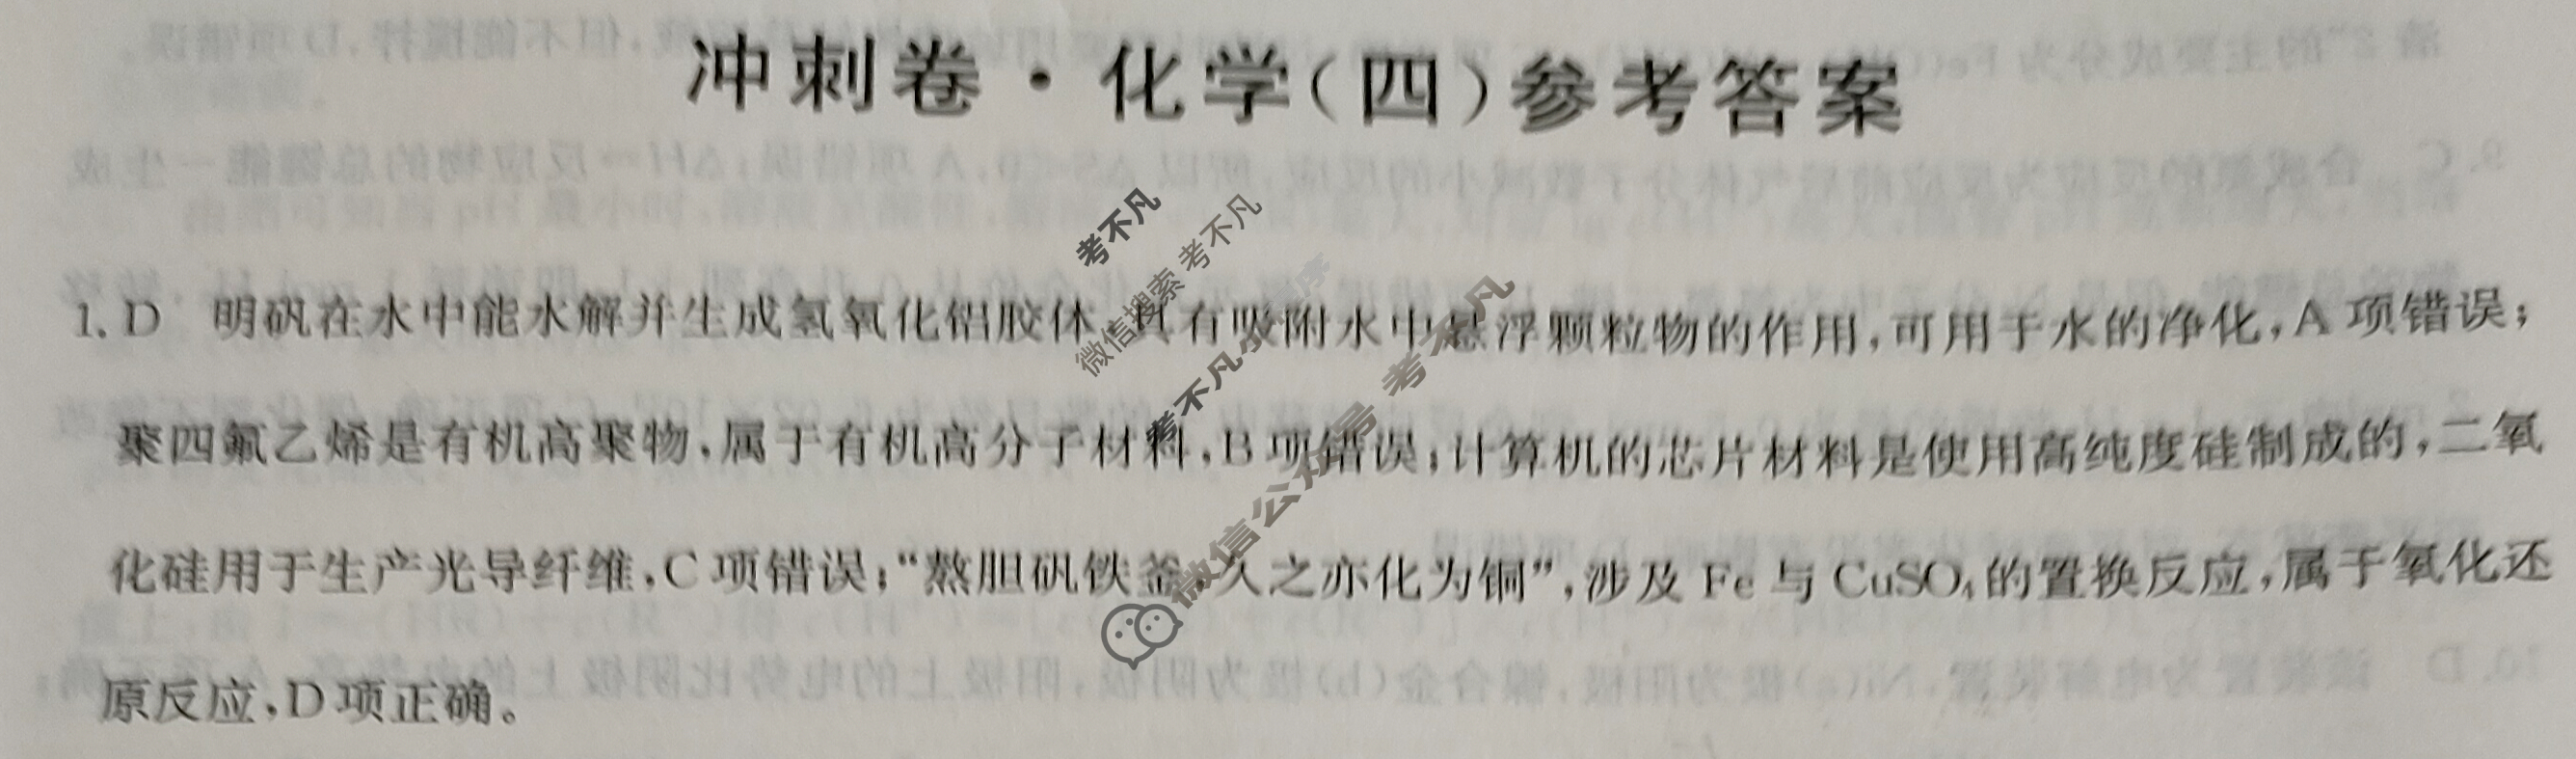 冲刺卷·化学(四)参考答案
1.D 明矾在水中能水解并生成氢氧化铝胶体,具有吸附水中悬浮颗粒物的作用,可用于水的净化,A项错误;
聚四氟乙烯是有机高聚物,属于有机高分子材料,B项错误;计算机的芯片材料是使用高纯度硅制成的,二氧
化硅用于生产光导纤维,C项错误;“熬胆矾铁釜,久之亦化为铜”,涉及Fe与CuSO₄的置换反应,属于氧化还
原反应,D项正确。
考不凡
微信搜索 考不凡
考不凡小程序
微信公众号 考不凡